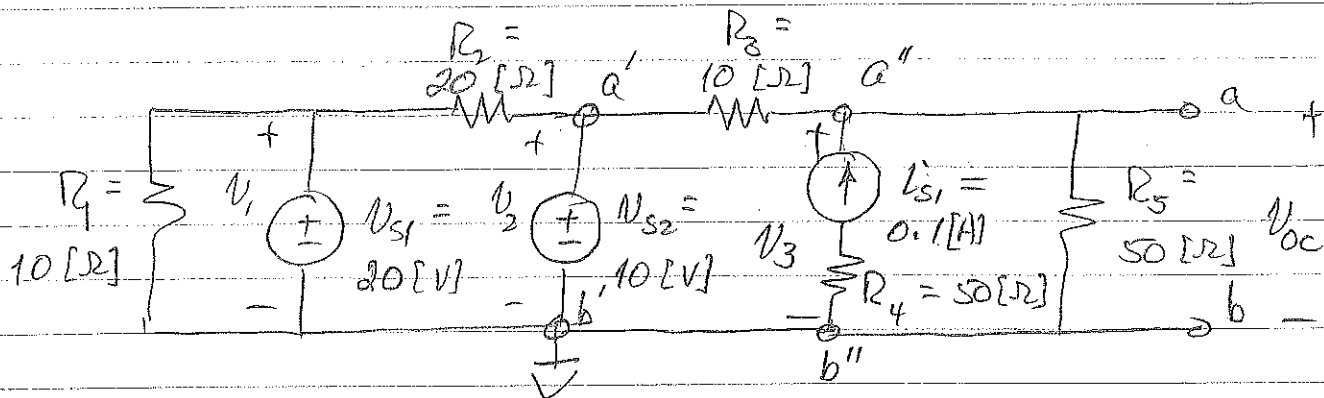 R₂ =
20 [Ω]
a'
R₃ =
10 [Ω]
a"
a
+
+
+
+
R₁ =
10 [Ω]
v₁
+
-
v_S1 =
20 [V]
v₂
+
-
v_S2 =
10 [V]
v₃
i_S1 =
0.1 [A]
R₄ = 50 [Ω]
R₅ =
50 [Ω]
v_OC
-
-
-
b'
b"
b
-